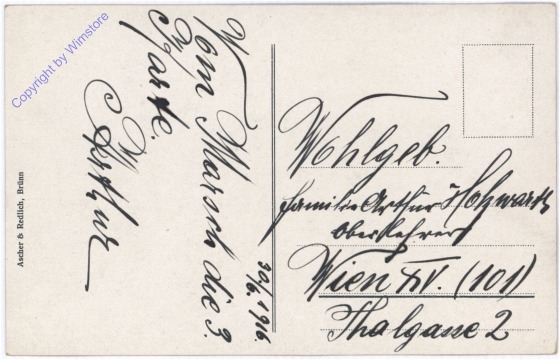 Vom Marsch die 3.
Karte.
Arthur
30/6. 1916
Wohlgeb.
Familie Arthur Holzwarth
Oberlehrer
Wien XV. (101)
Thalgasse 2
Ascher & Redlich, Brünn
Copyright by Wimstore